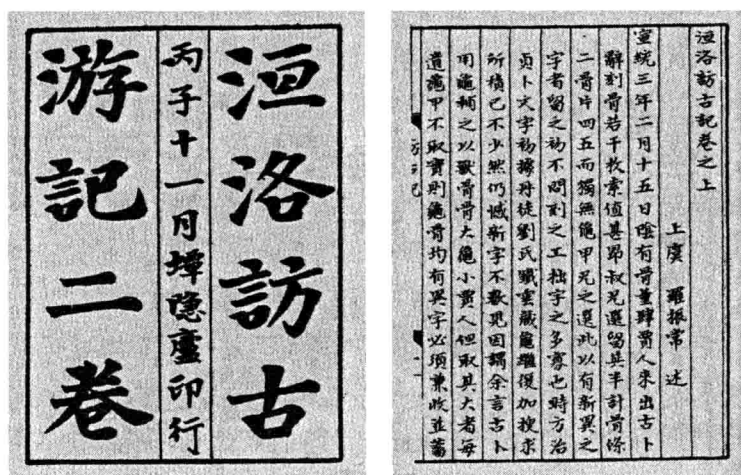 洹洛訪古
丙子十一月墠隐廬印行
游記二卷
洹洛訪古記卷之上
上虞 羅振常 述
宣統三年二月十五日陰有骨董肆賈人來出古卜
辭刻骨若干枚索值甚昂叔兄選留其半計骨條
二骨片四五而獨無龜甲兄之選此以有新異之
字者留之初不問刻之工拙字之多寡也時方治
貞卜文字初據丹徒劉氏鐵雲藏龜繼復加搜求
所積已不少然仍憾新字不數見因謂余言古卜
用龜輔之以獸骨骨大龜小賈人但取其大者每
遺龜甲不取實則龜骨均有異字必須兼收並蓄